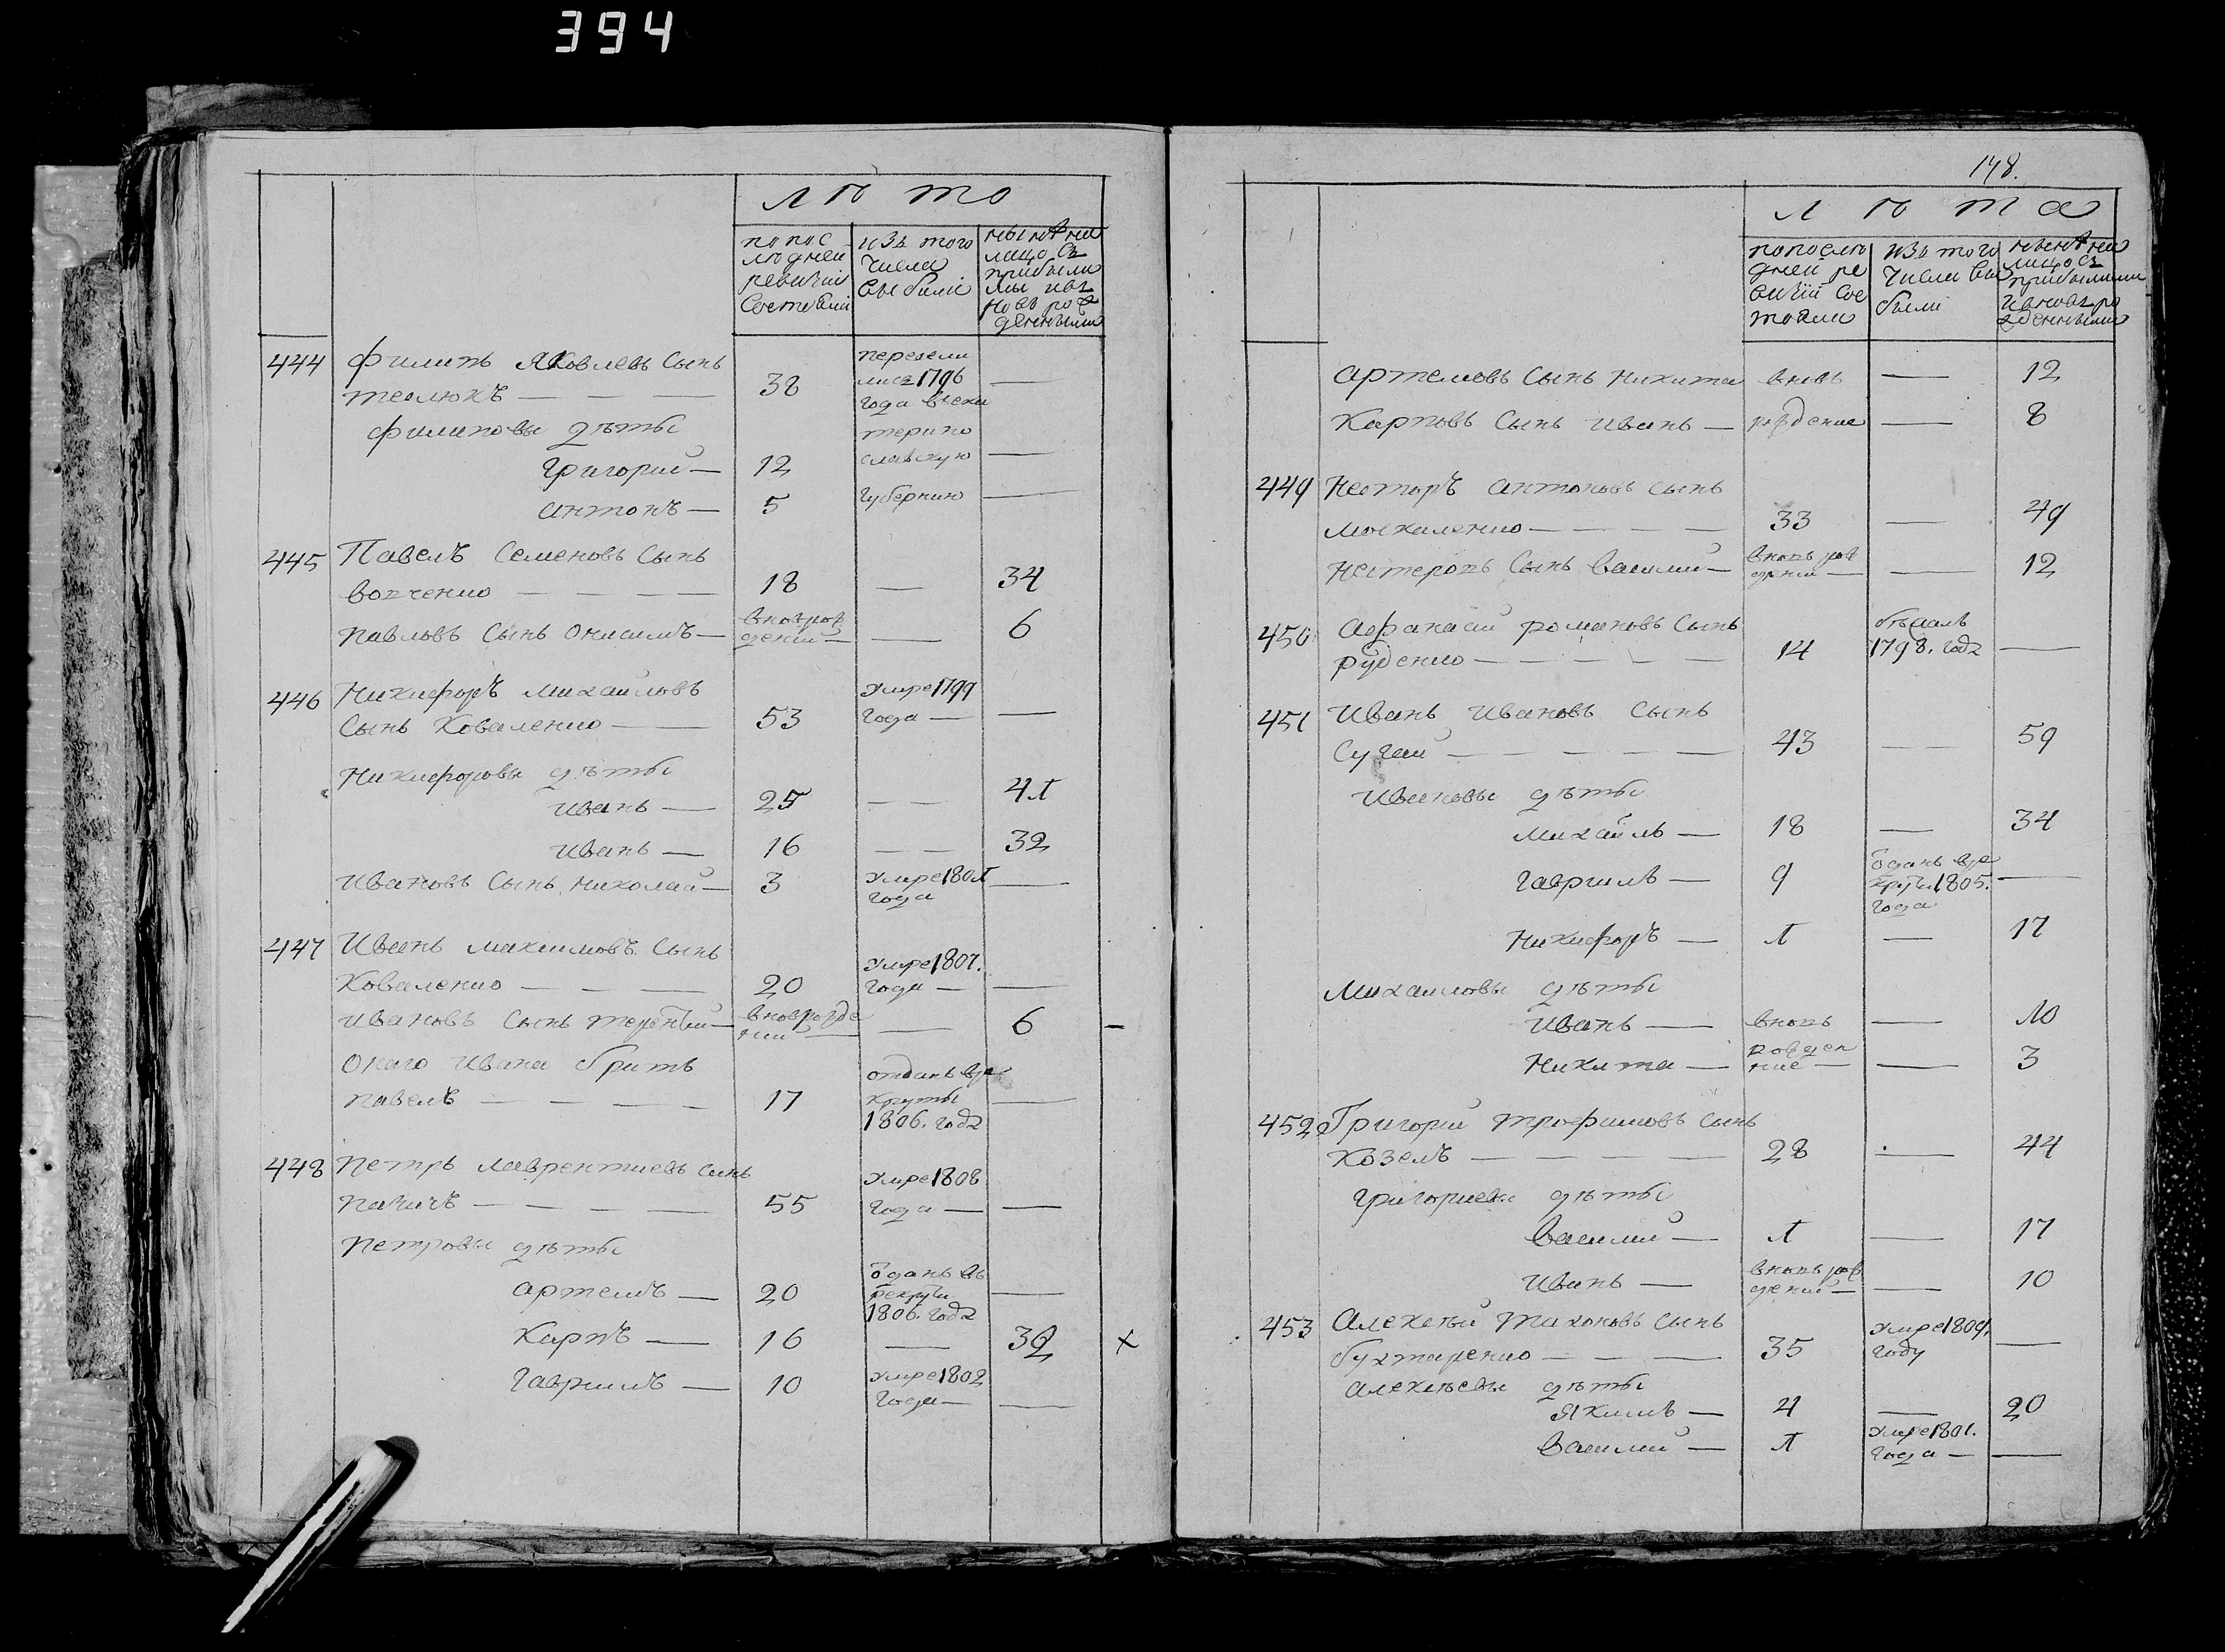 394
Лѣто
по пос
лѣдней
ревизіи
состояли
изъ того
числа
выбыли
нынѣ на
лицо съ
прибылы
мы и въ
новь рож
денными
444 Филипъ Яковлевъ Сынъ
перевели
тслюкъ — — — 38 лись 1796 —
года векa
Филиповы дѣты
терино
Григорий — 12 славскую —
Антонъ — 5 губернию —
445 Павелъ Семеновъ Сынъ
вовченко — — — — 18 — 34
Павловъ Сынъ Онисимъ — вновърож
дений — — 6
446 Никифоръ Михайловъ
умре 1799
Сынъ Коваленко — — 53 года — —
Никифоровы дѣты
Иванъ — 25 — — 41
Иванъ — 16 — — 32
Ивановъ Сынъ Николай — 3 умре 1801
года —
447 Иванъ Максимовъ Сынъ
умре 1807.
Коваленко — — — 20 года — —
Ивановъ Сынъ терентий — вноврожде
ний — — 6 —
Оного Ивана братъ
отданъ вре
Павелъ — — — — 17 круты —
1806. годъ
448 Петръ Лаврентиевъ Сынъ
умре 1808
Паничъ — — — — 55 года — —
Петровы дѣты
Артемъ — 20 ōданъ въ
рекруты —
1806. годъ
Карпъ — 16 — 32 ×
Гаврилъ — 10 умре 1802
года — —
148.
Лѣта
по послѣ
дней ре
визіи сос
тояли
изъ того
числа вы
были
нынѣ на
лицо съ
прибылыми
и вновь ро
жденными
Артемовъ Сынъ Никита вновь — 12
Карповъ Сынъ Иванъ — рождение — 8
449 Несторъ Антоновъ Сынъ
Москаленко — — — — 33 — 49
Нестеровъ Сынъ Василий — вновь рож
дений — — 12
450 Афанасий романовъ Сынъ
бѣжалъ
руденко — — — — — 14 1798. годъ —
451 Иванъ Ивановъ Сынъ
Сугай — — — — — 43 — — 59
Ивановы дѣты
Михайлъ — 18 — 34
Гаврилъ — 9 ōданъ вре
круты 1805. —
года
Никифоръ — 1 — 17
Михайловы дѣты
Иванъ — вновь — 10
Никита — рожден
ние — — 3
452 Григорий трофимовъ Сынъ
Козелъ — — — — 28 — 44
Григориевы дѣты
Василий — 1 — 17
Иванъ — вновь рож
дений — — 10
453 Алексѣй тихоновъ Сынъ
умре 1809.
бухтаренко — — — 35 году —
Алексѣевы дѣты
Якимъ — 4 — 20
Василий — 1 умре 1801.
года — —